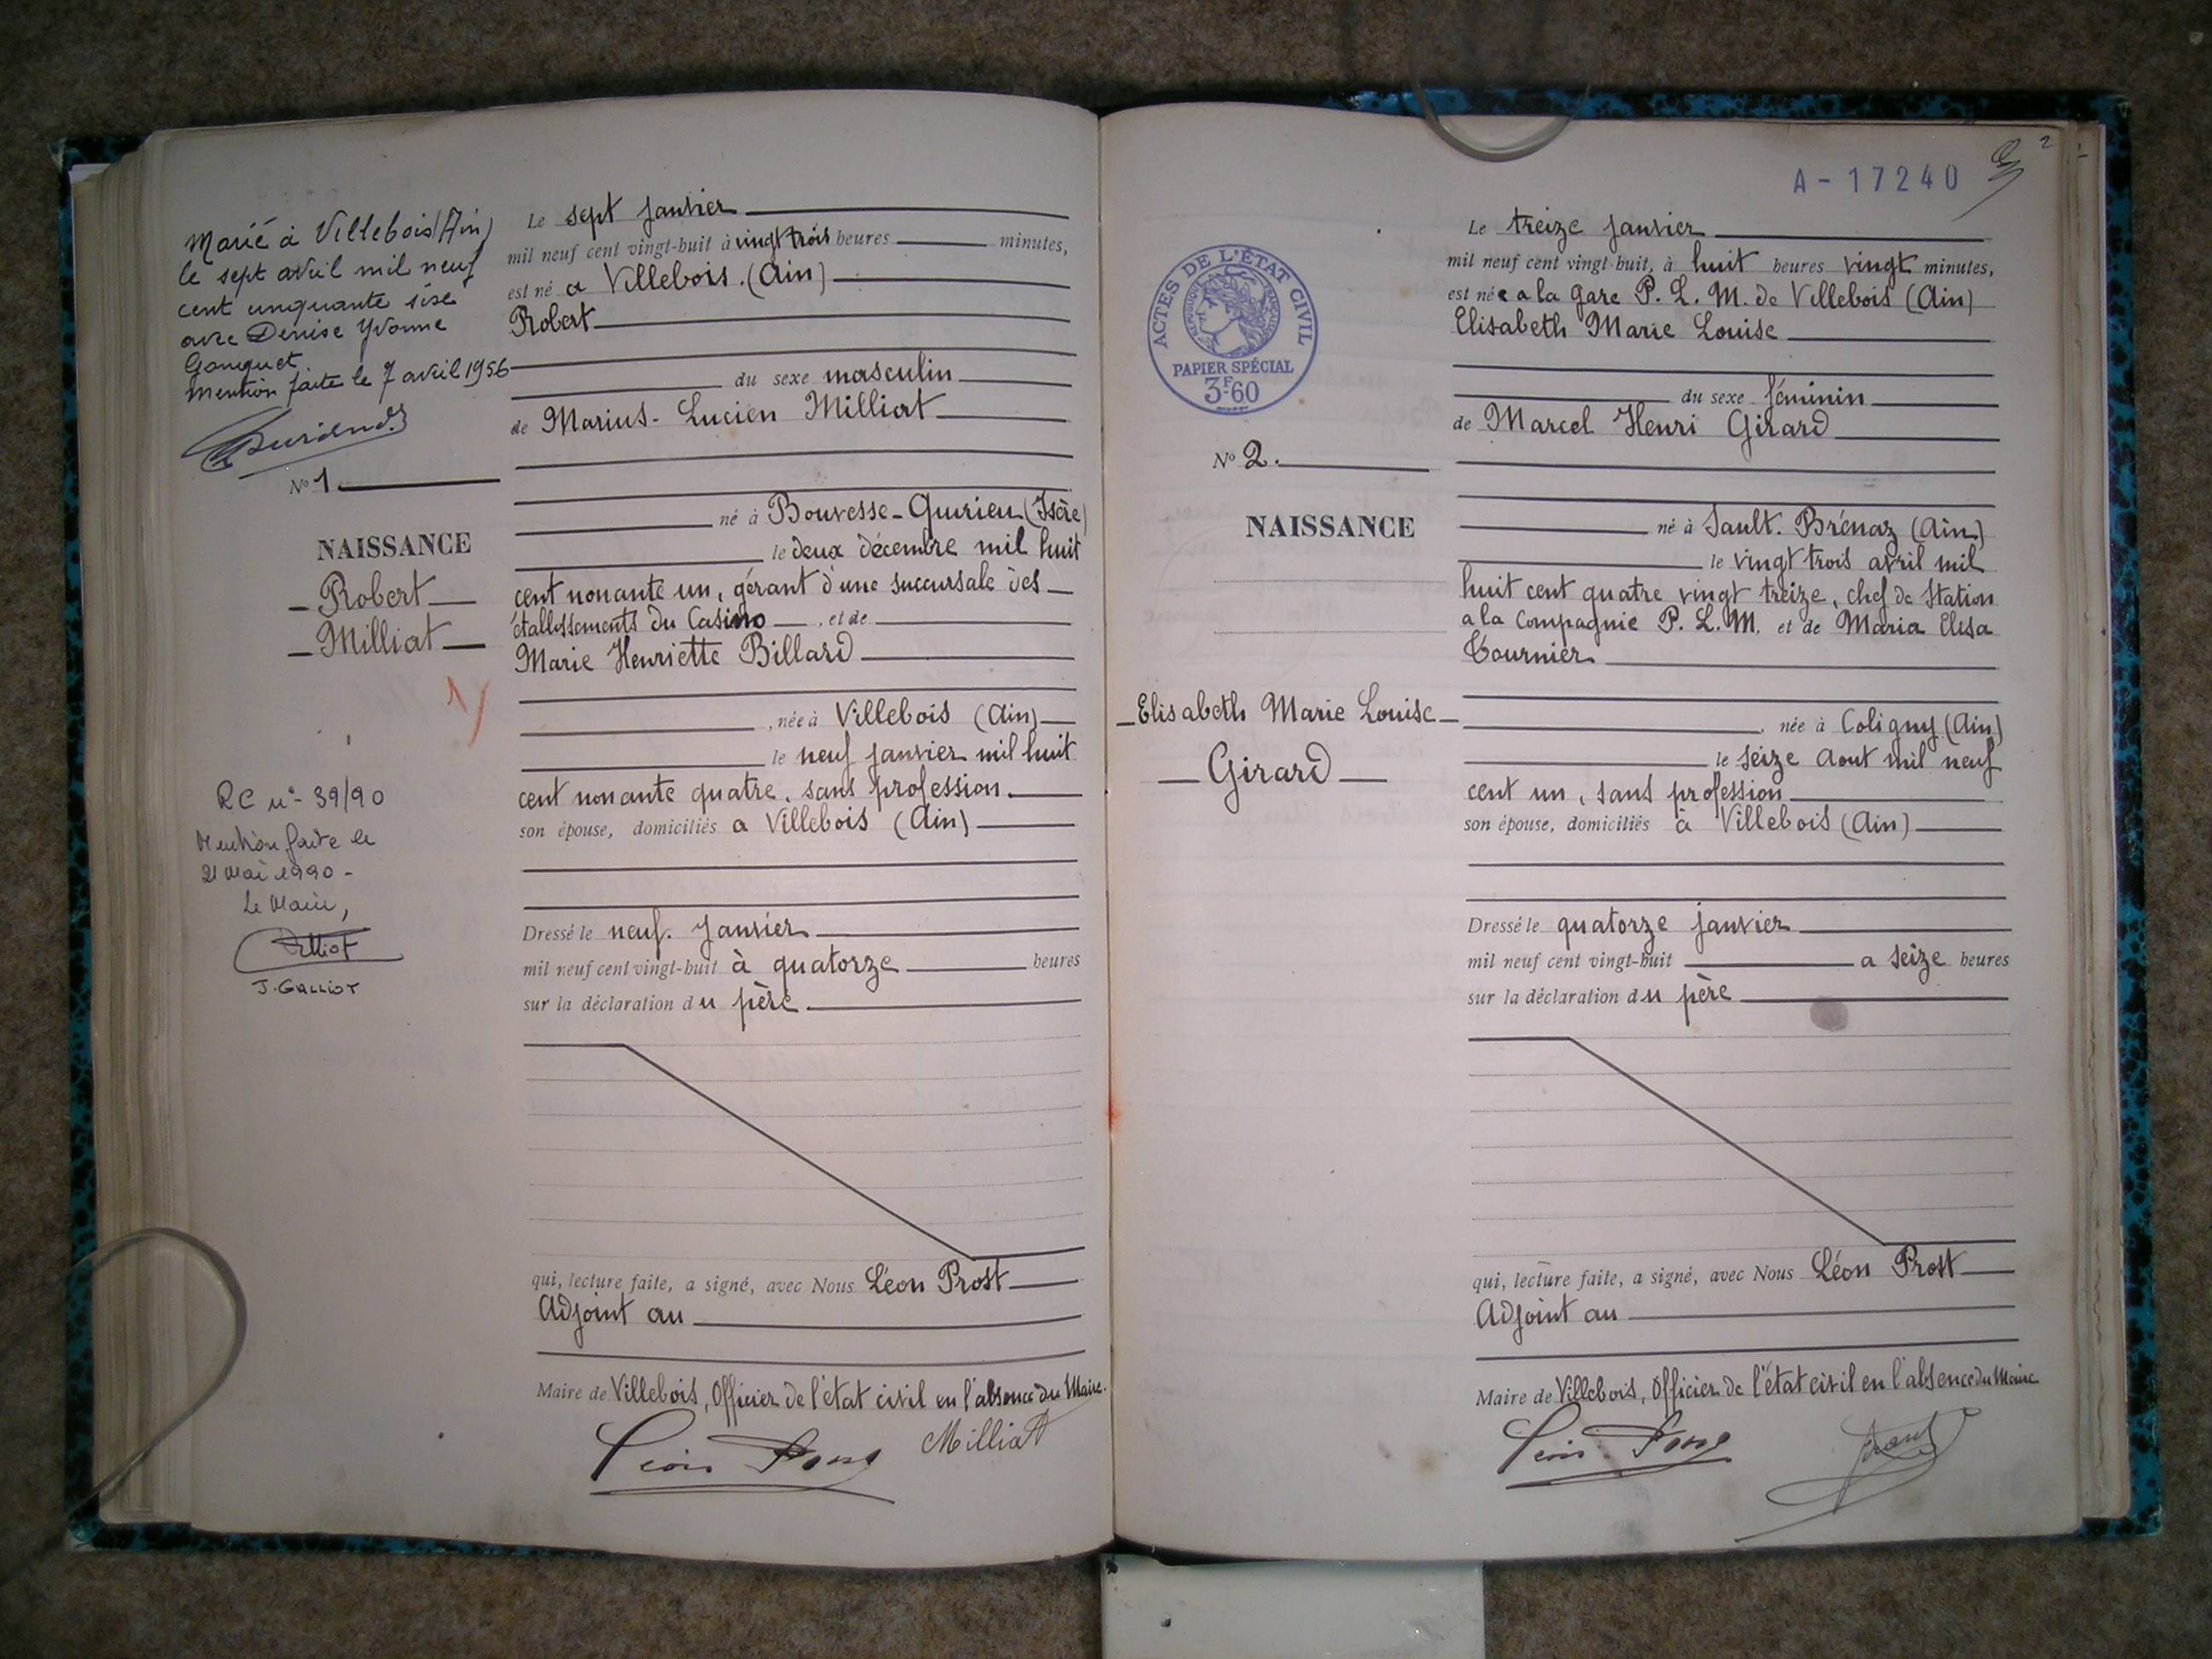 Marié à Villebois (Ain)
le sept avril mil neuf
cent cinquante sise
avec Denise Yvonne
Mention faite le 7 avril 1956
No 1
NAISSANCE
Robert
Milliat
1
RC n°- 39/90
Mention faite le
21 Mai 1990 -
Le Maire,
J. GALLIOT
Le sept janvier
mil neuf cent vingt-huit à vingt trois heures minutes,
est né a Villebois. (Ain)
Robert
du sexe masculin
de Marius- Lucien Milliat
né à Bouvesse-Quirieu (Isère)
le deux décembre mil huit
cent nonante un, gérant d'une succursale des
établissements du Casino , et de
Marie Henriette Billard
, née à Villebois (Ain)
le neuf janvier mil huit
cent nonante quatre, sans profession.
son épouse, domiciliés a Villebois (Ain)
Dressé le neuf. janvier
mil neuf cent vingt-huit à quatorze heures
sur la déclaration du père
qui, lecture faite, a signé, avec Nous Léon Prost
Adjoint au
Maire de Villebois, Officier de l'état civil en l'absence du Maire.
Milliat
A-17240
2
ACTES DE L'ÉTAT CIVIL
RÉPUBLIQUE FRANÇAISE
PAPIER SPÉCIAL
3F60
No 2.
NAISSANCE
Elisabeth Marie Louise
Girard
Le treize janvier
mil neuf cent vingt-huit, à huit heures vingt minutes,
est née a la gare P. L. M. de Villebois (Ain)
Elisabeth Marie Louise
du sexe féminin
de Marcel Henri Girard
né à Sault. Brénaz (Ain)
le vingt trois avril mil
huit cent quatre vingt treize, chef de Station
a la Compagnie P. L. M. et de Maria Elisa
Tournier
, née à Coligny (Ain)
le seize Aout mil neuf
cent un, sans profession
son épouse, domiciliés à Villebois (Ain)
Dressé le quatorze janvier
mil neuf cent vingt-huit a seize heures
sur la déclaration du père
qui, lecture faite, a signé, avec Nous Léon Prost
Adjoint au
Maire de Villebois, Officier de l'état civil en l'absence du Maire